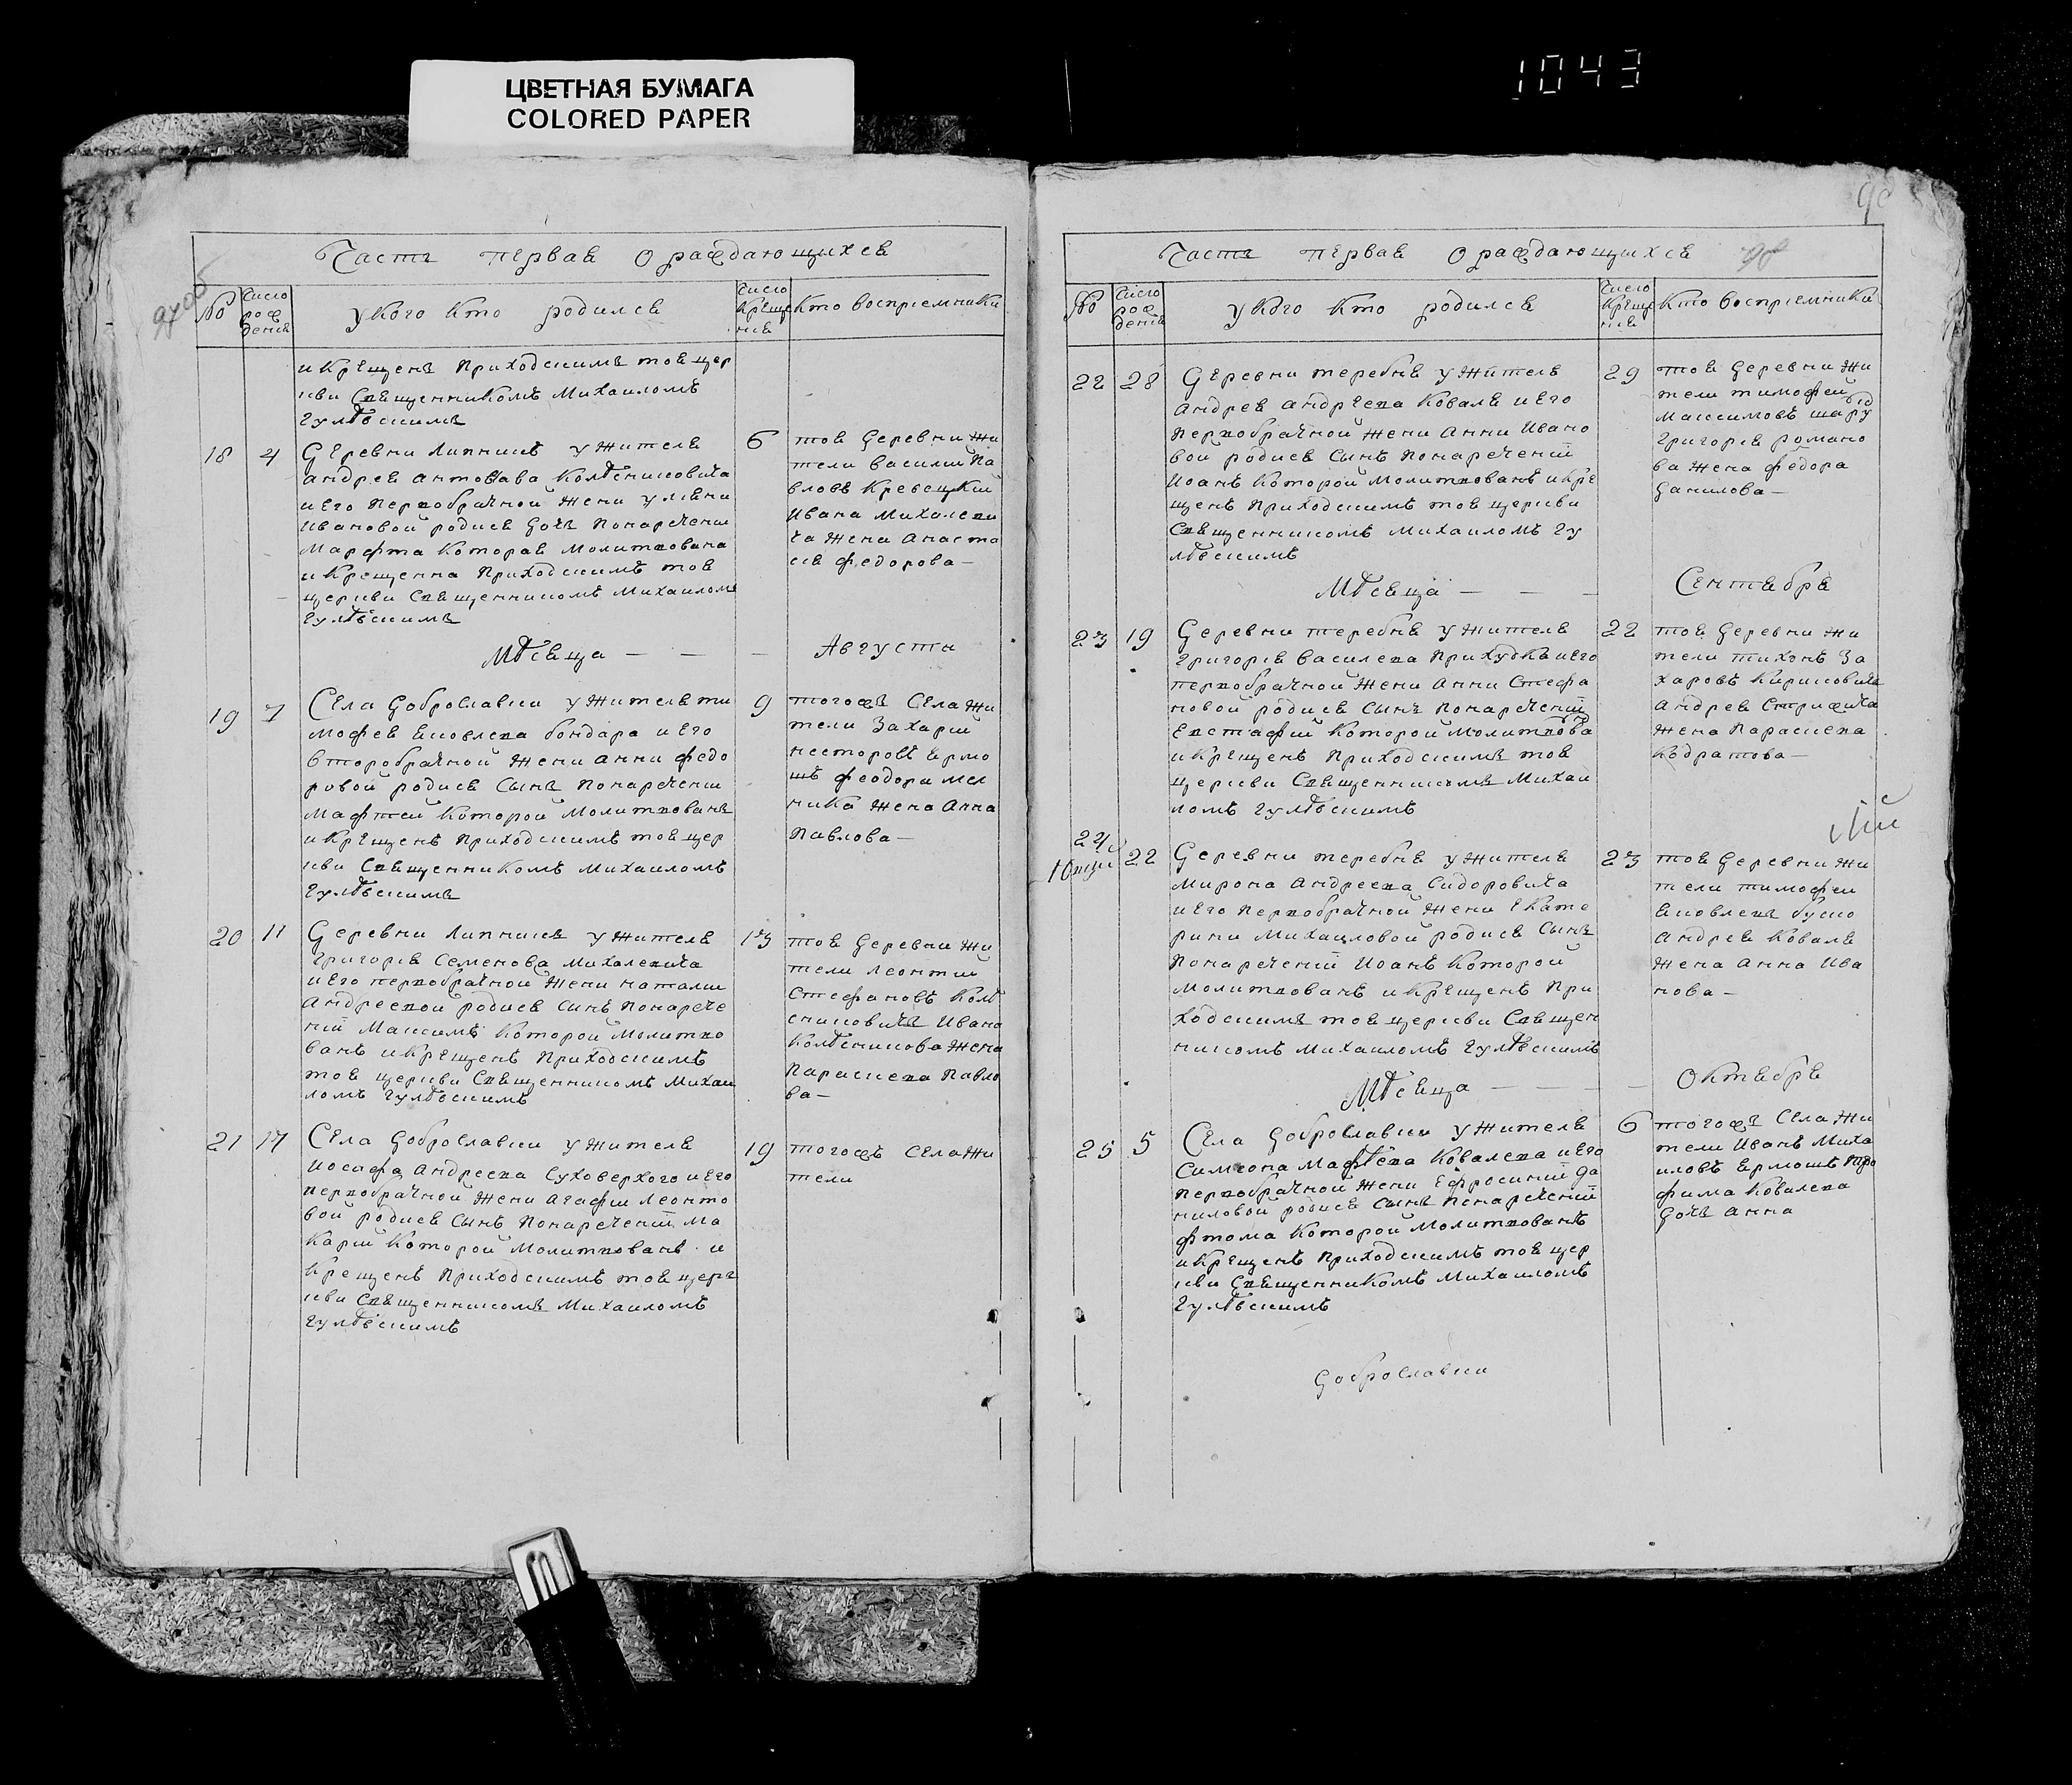 ЦВЕТНАЯ БУМАГА
COLORED PAPER
1043
Часть первая О раждающихся
№
Число рождения
У кого кто родился
Число крещения
Кто восприемники
и крещенъ приходскимъ тоя цер
кви Священникомъ Михаиломъ
Гулѣвскимъ
18 4
Деревни Липникъ у жителя
Андрея Антонава Колѣсниковича
и его первобрачной жени Улїяни
Ивановой родися дочь понаречении
Марфта которая молитвована
и крещенна приходскимъ тоя
церкви Священникомъ Михаилом
Гулѣвскимъ
6
тоя деревни жи
тели Василий Па
вловъ Кревецкий
Ивана Михалеви
ча жена Анаста
сия Федорова —
Мѣсяца — — — Августа
19 7
Села Доброславки у жителя Ти
мофея Яковлева Бондара и его
второбрачной жени Анни Федо
ровой родися сынъ понаречении
Мафтей которой молитвованъ
и крещенъ приходскимъ тоя цер
кви Священникомъ Михаиломъ
Гулѣвскимъ
9
тогожъ села жи
тели Захарий
Несторовъ Ермо
шъ Феодори Мел
ника жена Анна
Павлова —
20 11
Деревни Липникъ у жителя
Григорїя Семенова Михалевича
и его первобрачной жени Наталии
Андреевой родися синъ понарече
нїи Максимъ которой молитво
ванъ и крещенъ приходскимъ
тоя церкви Священникомъ Михаи
ломъ Гулѣвскимъ
13
тоя деревни жи
тели Леонтий
Стефановъ Колѣ
сниковичъ Ивана
Колѣсникова жена
Параскева Павло
ва —
21 17
Села Доброславки у жителя
Иосафа Андреева Суховерхого и его
первобрачной жени Агафии Леонто
вой родися сынъ понаречении Ма
карий которой молитвованъ и
крещенъ приходскимъ тоя церк
кви Священникомъ Михаиломъ
Гулѣвскимъ
19
тогожъ села жи
тели
Часть первая О раждающихся
№
Число рождения
У кого кто родился
Число крещения
Кто восприемники
22 28
Деревни Теребня у жителя
Андрея Андреева Коваля и его
первобрачной жени Анни Ивано
вой родися сынъ понаречении
Иоанъ которой молитвованъ и кре
щенъ приходскимъ тоя церкви
Священникомъ Михаиломъ Гу
лѣвскимъ
29
тоя деревни жи
тели Тимофей
Максимовъ
Григория Романо
ва жена Федора
Данилова —
Мѣсяца — — — Сентября
23 19
Деревни Теребня у жителя
Григорїя Василева Прихудка и его
первобрачной жени Анни Стефа
новой родися сынъ понаречении
Евстафий которой молитвова
и крещенъ приходскимъ тоя
церкви Священникомъ Михаи
ломъ Гулѣвскимъ
22
тоя деревни жи
тели Тихонъ За
харовъ Кирисовичъ
Андрея
жена Параскева
Кодратова —
24 22
Деревни Теребня у жителя
Мирона Андреева Сидоровича
и его первобрачной жени Екате
рини Михаиловой родися сынъ
понаречении Иоанъ которой
молитвованъ и крещенъ при
ходскимъ тоя церкви Священ
никомъ Михаиломъ Гулѣвскимъ
23
тоя деревни жи
тели Тимофеи
Яковлевъ Буско
Андрея Коваля
жена Анна Ива
нова —
Мѣсяца — — — Октября
25 5
Села Доброславки у жителя
Симеона Мафтѣева Ковалева и его
первобрачной жени Ефросинии Да
ниловой родися сынъ понаречении
Фтома которой молитвованъ
и крещенъ приходскимъ тоя цер
кви Священникомъ Михаиломъ
Гулѣвскимъ
6
тогожъ села жи
тели Иванъ Миха
иловъ Ермошъ Тро
фима Ковалева
дочь Анна
Доброславки